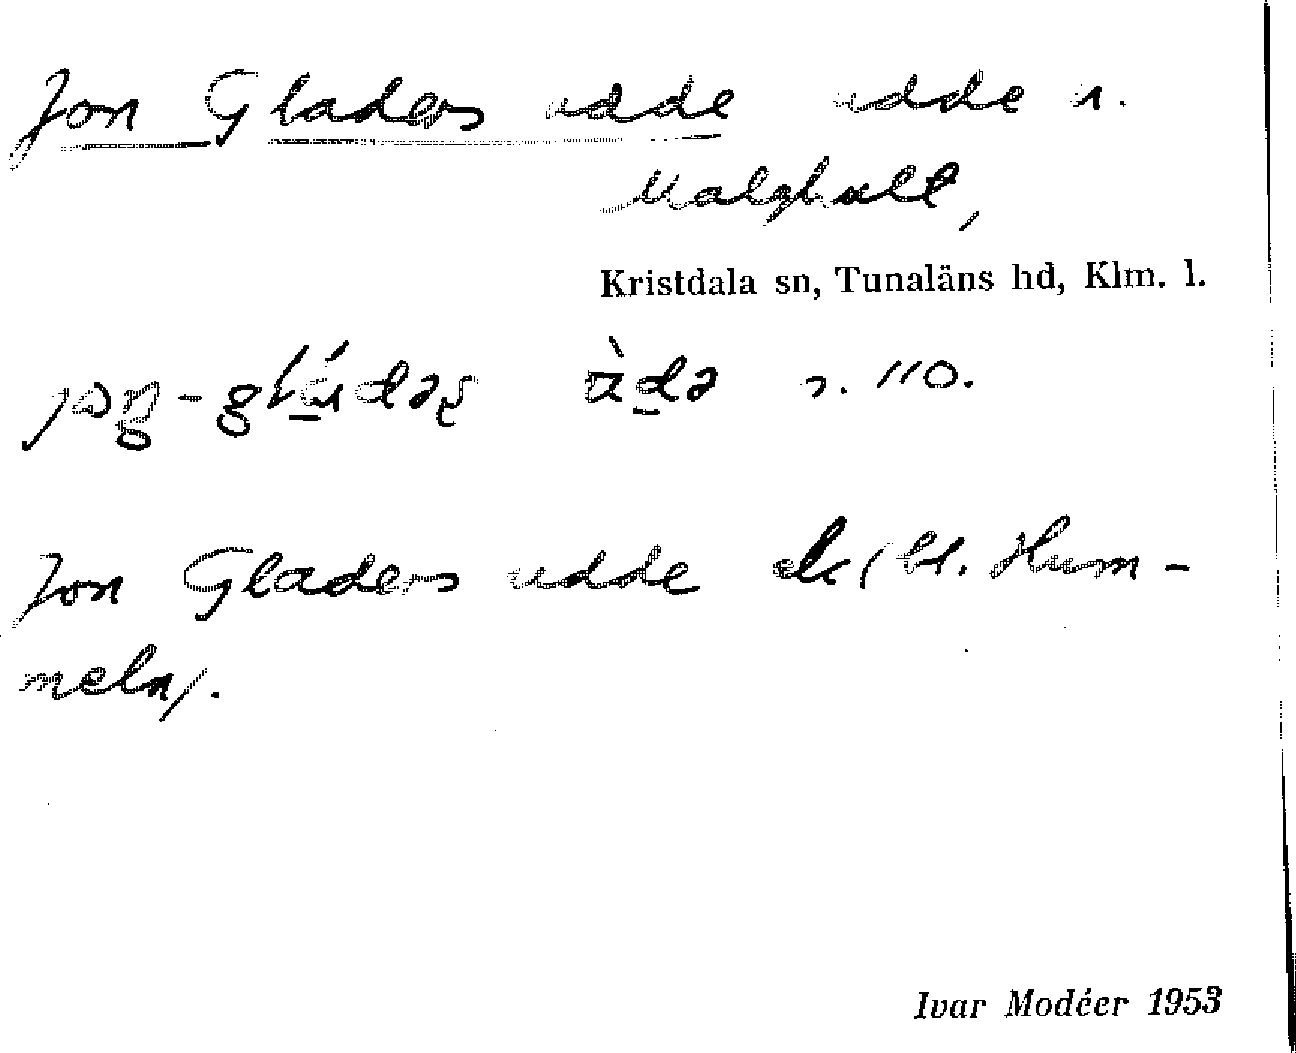 Jon Gladers udde udde n.
Malghult,
Kristdala sn, Tunaläns hd, Klm. l.
n. 110.
Jon Gladers udde (bl. Hum-
meln).
Ivar Modéer 1953